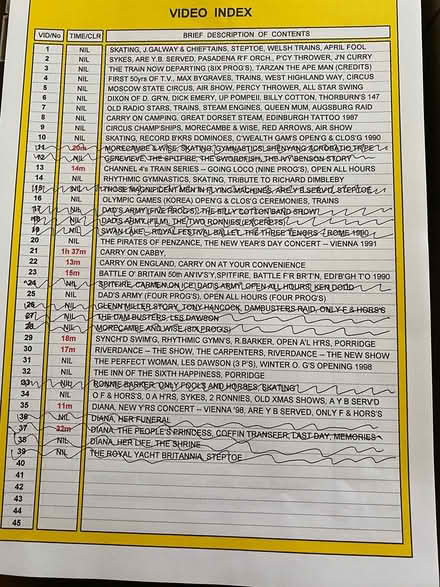 VIDEO INDEX
VID/No TIME/CLR BRIEF DESCRIPTION OF CONTENTS
1 NIL SKATING, J.GALWAY & CHIEFTAINS, STEPTOE, WELSH TRAINS, APRIL FOOL
2 NIL SYKES, ARE Y.B. SERVED, PASADENA R'F ORCH., P'CY THROWER, J'N CURRY
3 NIL THE TRAIN NOW DEPARTING (SIX PROG'S), TARZAN THE APE MAN (CREDITS)
4 NIL FIRST 50yrs OF T.V., MAX BYGRAVES, TRAINS, WEST HIGHLAND WAY, CIRCUS
5 NIL MOSCOW STATE CIRCUS, AIR SHOW, PERCY THROWER, ALL STAR SWING
6 NIL DIXON OF D. GR'N, DICK EMERY, UP POMPEII, BILLY COTTON, THORBURN'S 147
7 NIL OLD RADIO STARS, TRAINS, STEAM ENGINES, QUEEN MUM, AUGSBURG RAID
8 NIL CARRY ON CAMPING, GREAT DORSET STEAM, EDINBURGH TATTOO 1987
9 NIL CIRCUS CHAMP'SHIPS, MORECAMBE & WISE, RED ARROWS, AIR SHOW
10 NIL SKATING, RECORD B'KRS DOMINOES, C'WEALTH GAM'S OPEN'G & CLOS'G 1990
11 20m MORECAMBE & WISE, SKATING, GYMNASTICS, SHENYANG ACROBATIC TRIBE
12 NIL GENEVIEVE, THE SPITFIRE, THE SWORDFISH, THE IVY BENSON STORY
13 14m CHANNEL 4's TRAIN SERIES -- GOING LOCO (NINE PROG'S), OPEN ALL HOURS
14 NIL RHYTHMIC GYMNASTICS, SKATING, TRIBUTE TO RICHARD DIMBLEBY
15 NIL THOSE MAGNIFICENT MEN IN FLYING MACHINES, ARE Y B SERV'D, STEPTOE
16 NIL OLYMPIC GAMES (KOREA) OPEN'G & CLOS'G CEREMONIES, TRAINS
17 NIL DAD'S ARMY (FIVE PROG'S), THE BILLY COTTON BAND SHOW
18 NIL DAD'S ARMY (FILM), THE TWO RONNIES (EXCERPTS)
19 NIL SWAN LAKE -- ROYAL FESTIVAL BALLET, THE THREE TENORS -- ROME 1990
20 NIL THE PIRATES OF PENZANCE, THE NEW YEAR'S DAY CONCERT -- VIENNA 1991
21 1h 37m CARRY ON CABBY,
22 13m CARRY ON ENGLAND, CARRY ON AT YOUR CONVENIENCE
23 15m BATTLE O' BRITAIN 50th AN'IV'S'Y,SPITFIRE, BATTLE F'R BR'T'N, EDI'B'GH T'O 1990
24 NIL SPITFIRE, CARMEN ON ICE, DAD'S ARMY, OPEN ALL HOURS, KEN DODD
25 NIL DAD'S ARMY (FOUR PROG'S), OPEN ALL HOURS (FOUR PROG'S)
26 NIL GLENN MILLER STORY, TONY HANCOCK, DAMBUSTERS RAID, ONLY F & HORS'S
27 NIL THE DAM BUSTERS, LES DAWSON
28 NIL MORECAMBE AND WISE (SIX PROG'S)
29 18m SYNCH'D SWIM'G, RHYTHMIC GYMN'S, R.BARKER, OPEN A'L H'RS, PORRIDGE
30 17m RIVERDANCE -- THE SHOW, THE CARPENTERS, RIVERDANCE -- THE NEW SHOW
31 NIL THE PERFECT WOMAN, LES DAWSON (3 P'S), WINTER O. G'S OPENING 1998
32 NIL THE INN OF THE SIXTH HAPPINESS, PORRIDGE
33 NIL RONNIE BARKER, ONLY FOOLS AND HORSES, SKATING
34 NIL O F & HORS'S, O A H'RS, SYKES, 2 RONNIES, OLD XMAS SHOWS, A Y B SERV'D
35 11m DIANA, NEW Y'RS CONCERT -- VIENNA '98, ARE Y B SERVED, ONLY F & HORS'S
36 NIL DIANA, HER FUNERAL
37 32m DIANA, THE PEOPLE'S PRINCESS, COFFIN TRANSFER, LAST DAY, MEMORIES
38 NIL DIANA, HER LIFE, THE SHRINE
39 NIL THE ROYAL YACHT BRITANNIA, STEPTOE
40
41
42
43
44
45